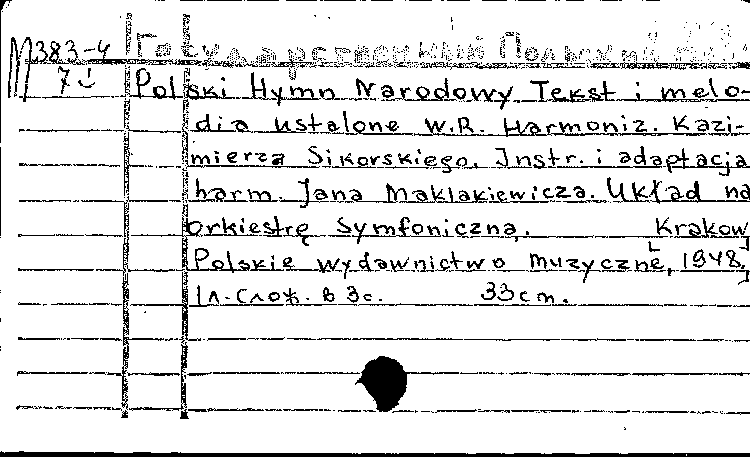 М 383-4 Государственный Польский
7 Polski Hymn Narodowy Tekst i melo-
dia ustalone W.R. Harmoniz. Kazi-
mierza Sikorskiego. Instr. i adaptacja
harm. Jana Maklakiewicza. Układ na
orkiestrę Symfoniczną. Krakow,
Polskie wydawnictwo muzyczne, 1948.
1л. слож. в 3с. 33cm.